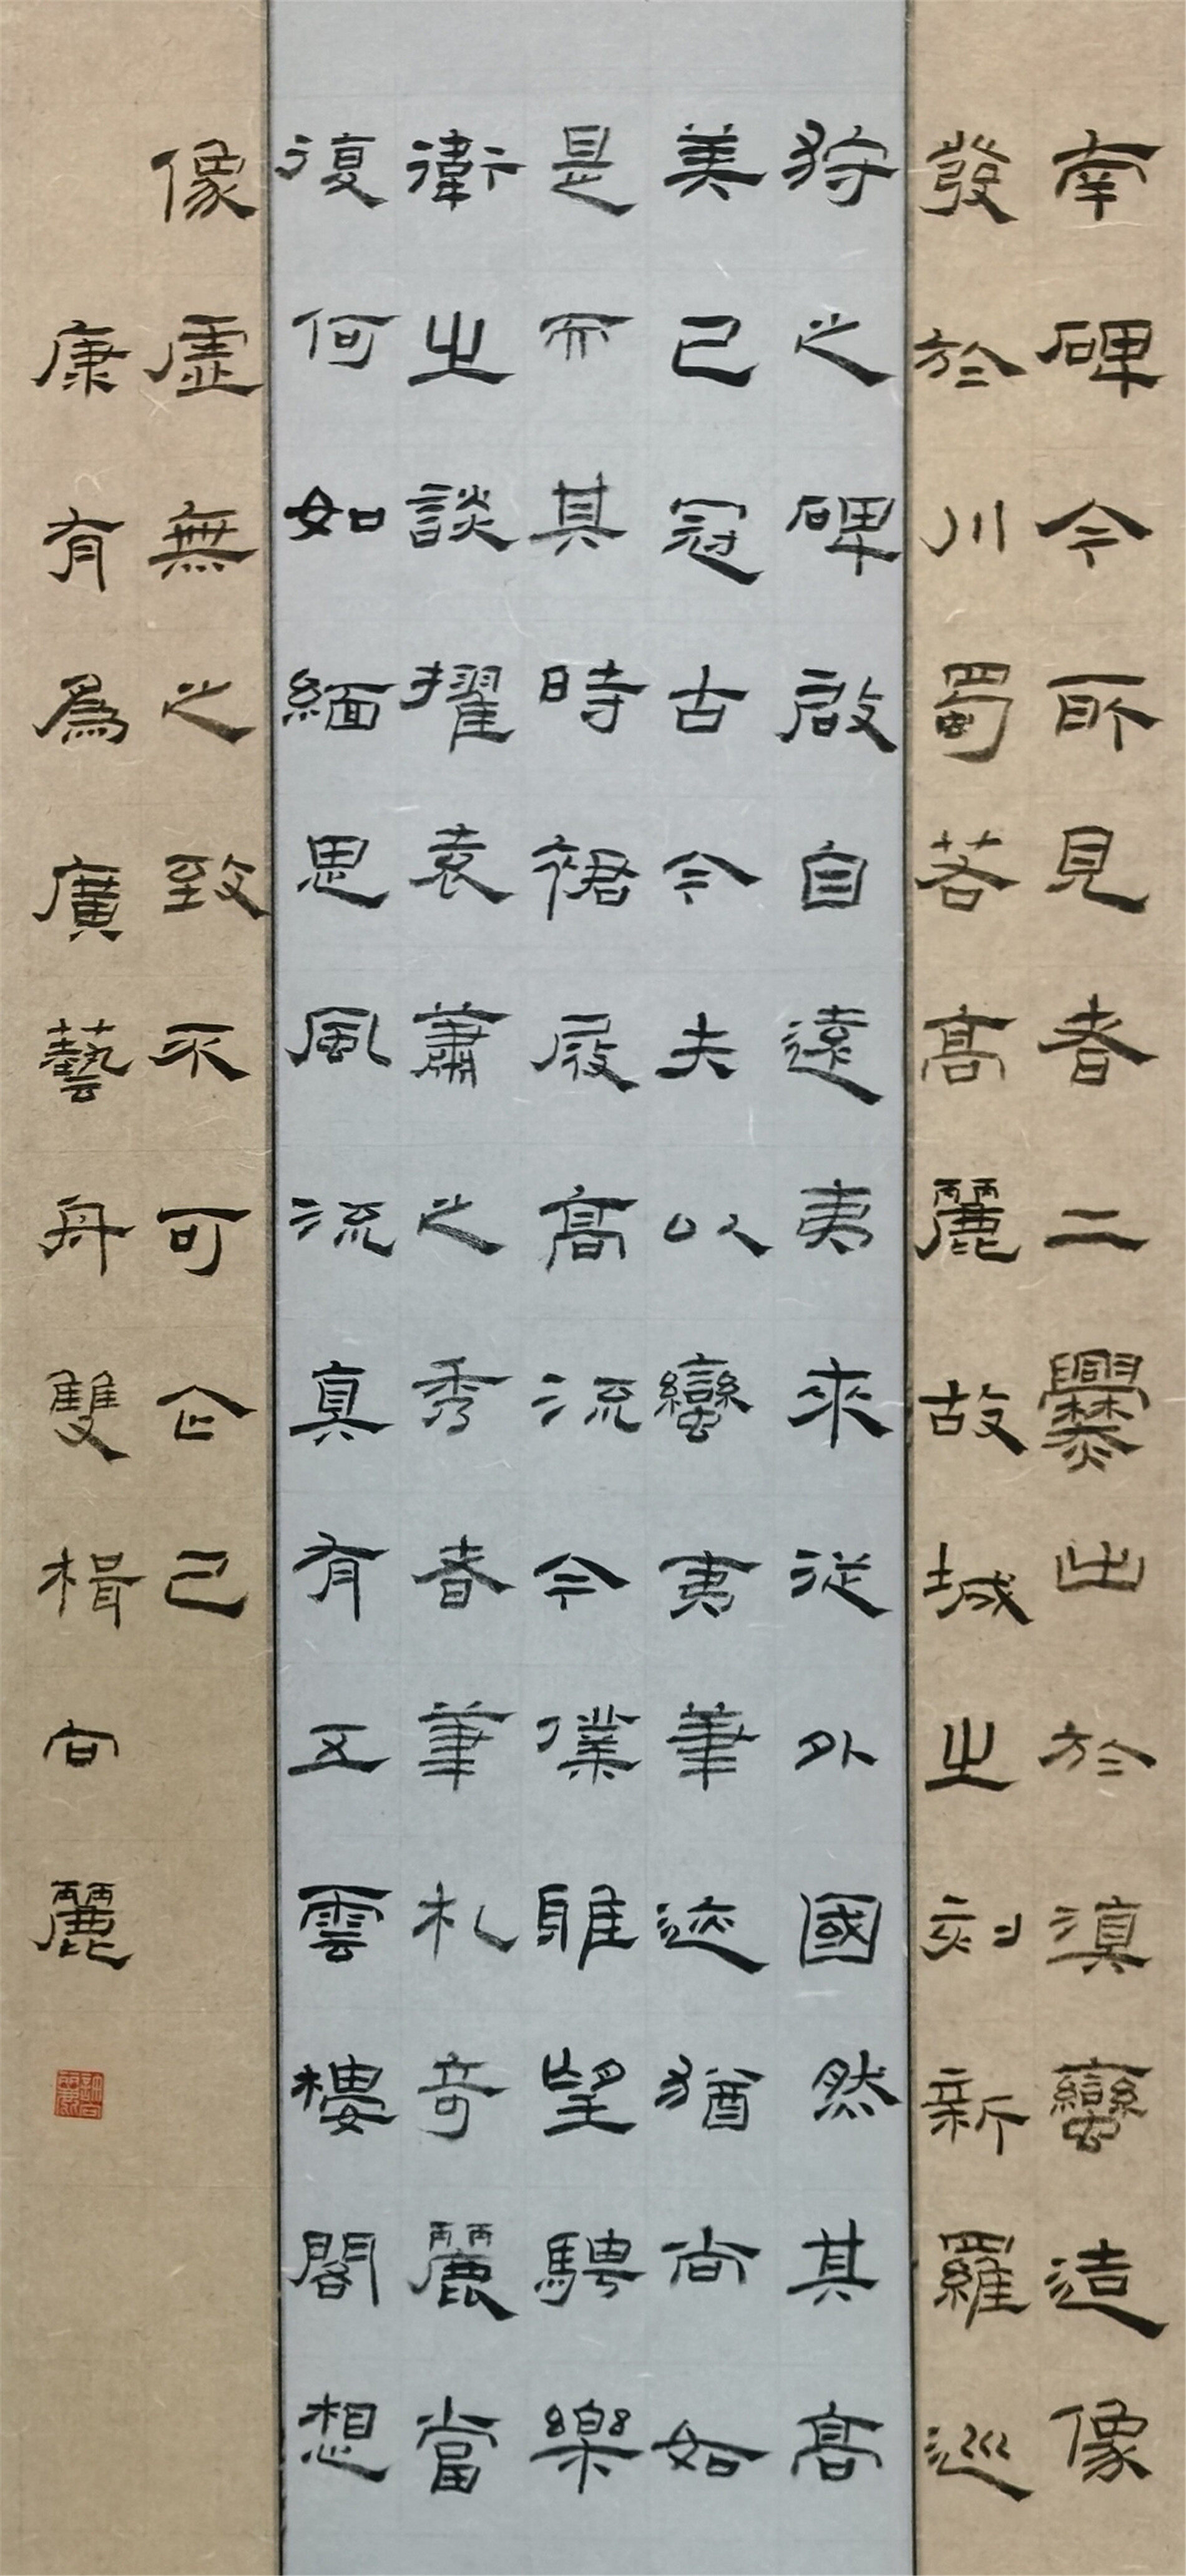 南碑今所見者二爨出於滇蠻造像
發於川蜀若高麗故城之刻新羅巡
狩之碑啟自遠夷來從外國然其高
美已冠古今夫以蠻夷筆迹猶尚如
是而其時裙屐高流令僕雅望騁樂
衛之談擢袁蕭之秀者筆札奇麗當
復何如緬思風流真有五雲樓閣想
像虛無之致不可企已
康有為廣藝舟雙楫向麗